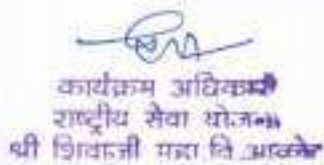 कार्यक्रम अधिकारी
राष्ट्रीय सेवा योजना
श्री शिवाजी महा वि आकोट